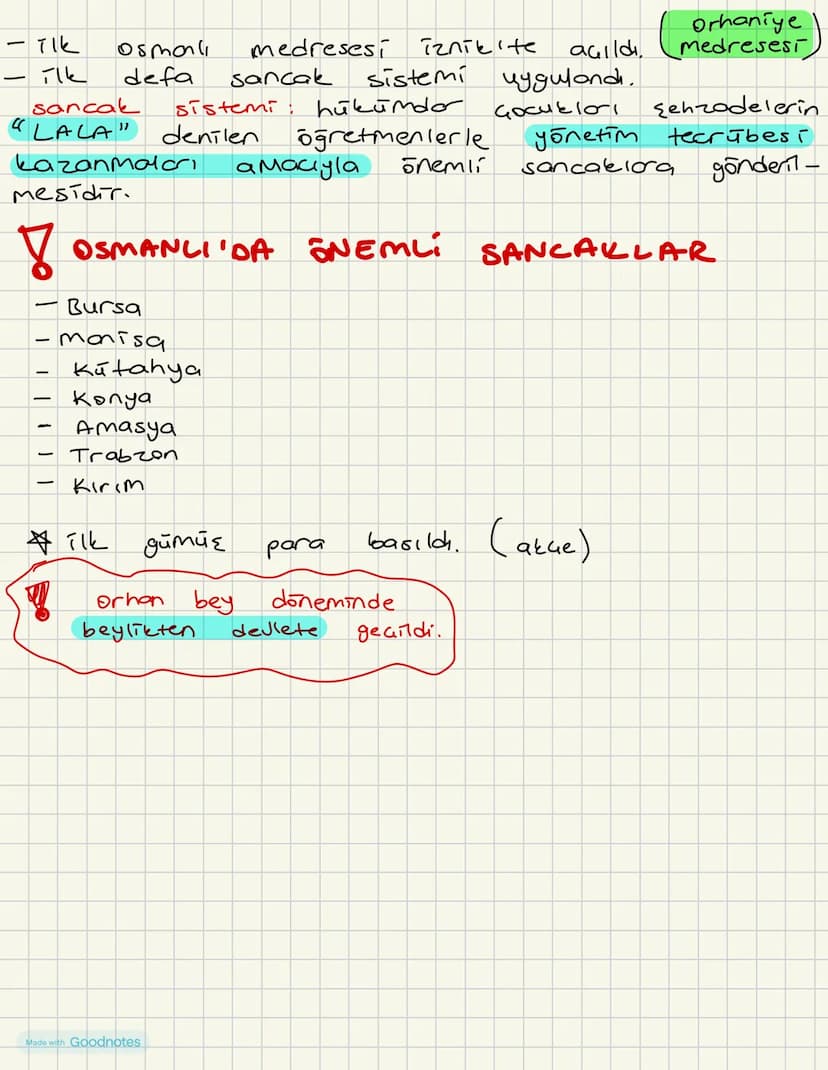 (orhaniye
- ilk osmanlı medresesi iznik'te açıldı. medresesi)
- ilk defa sancak sistemi uygulandı.
sancak sistemi: hükümdar çocukları şehzadelerin
"LALA" denilen öğretmenlerle yönetim tecrübesi
kazanmaları amacıyla önemli sancaklara gönderil-
mesidir.
! OSMANLI'DA ÖNEMLİ SANCAKLAR
- Bursa
- manisa
- Kütahya
- Konya
- Amasya
- Trabzon
- Kırım
☆ ilk gümüş para basıldı. (akçe)
! orhan bey döneminde
beylikten devlete geçildi.
Made with Goodnotes